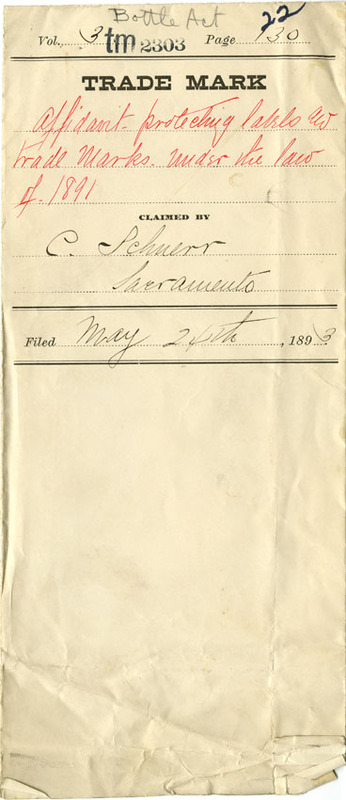 Bottle Act 22
Vol. 3 tm 2303 Page 130
TRADE MARK
Affidavit protecting labels and
trade Marks. under the law
of. 1891
CLAIMED BY
C. Schnerr
Sacramento
Filed May 24th, 1893